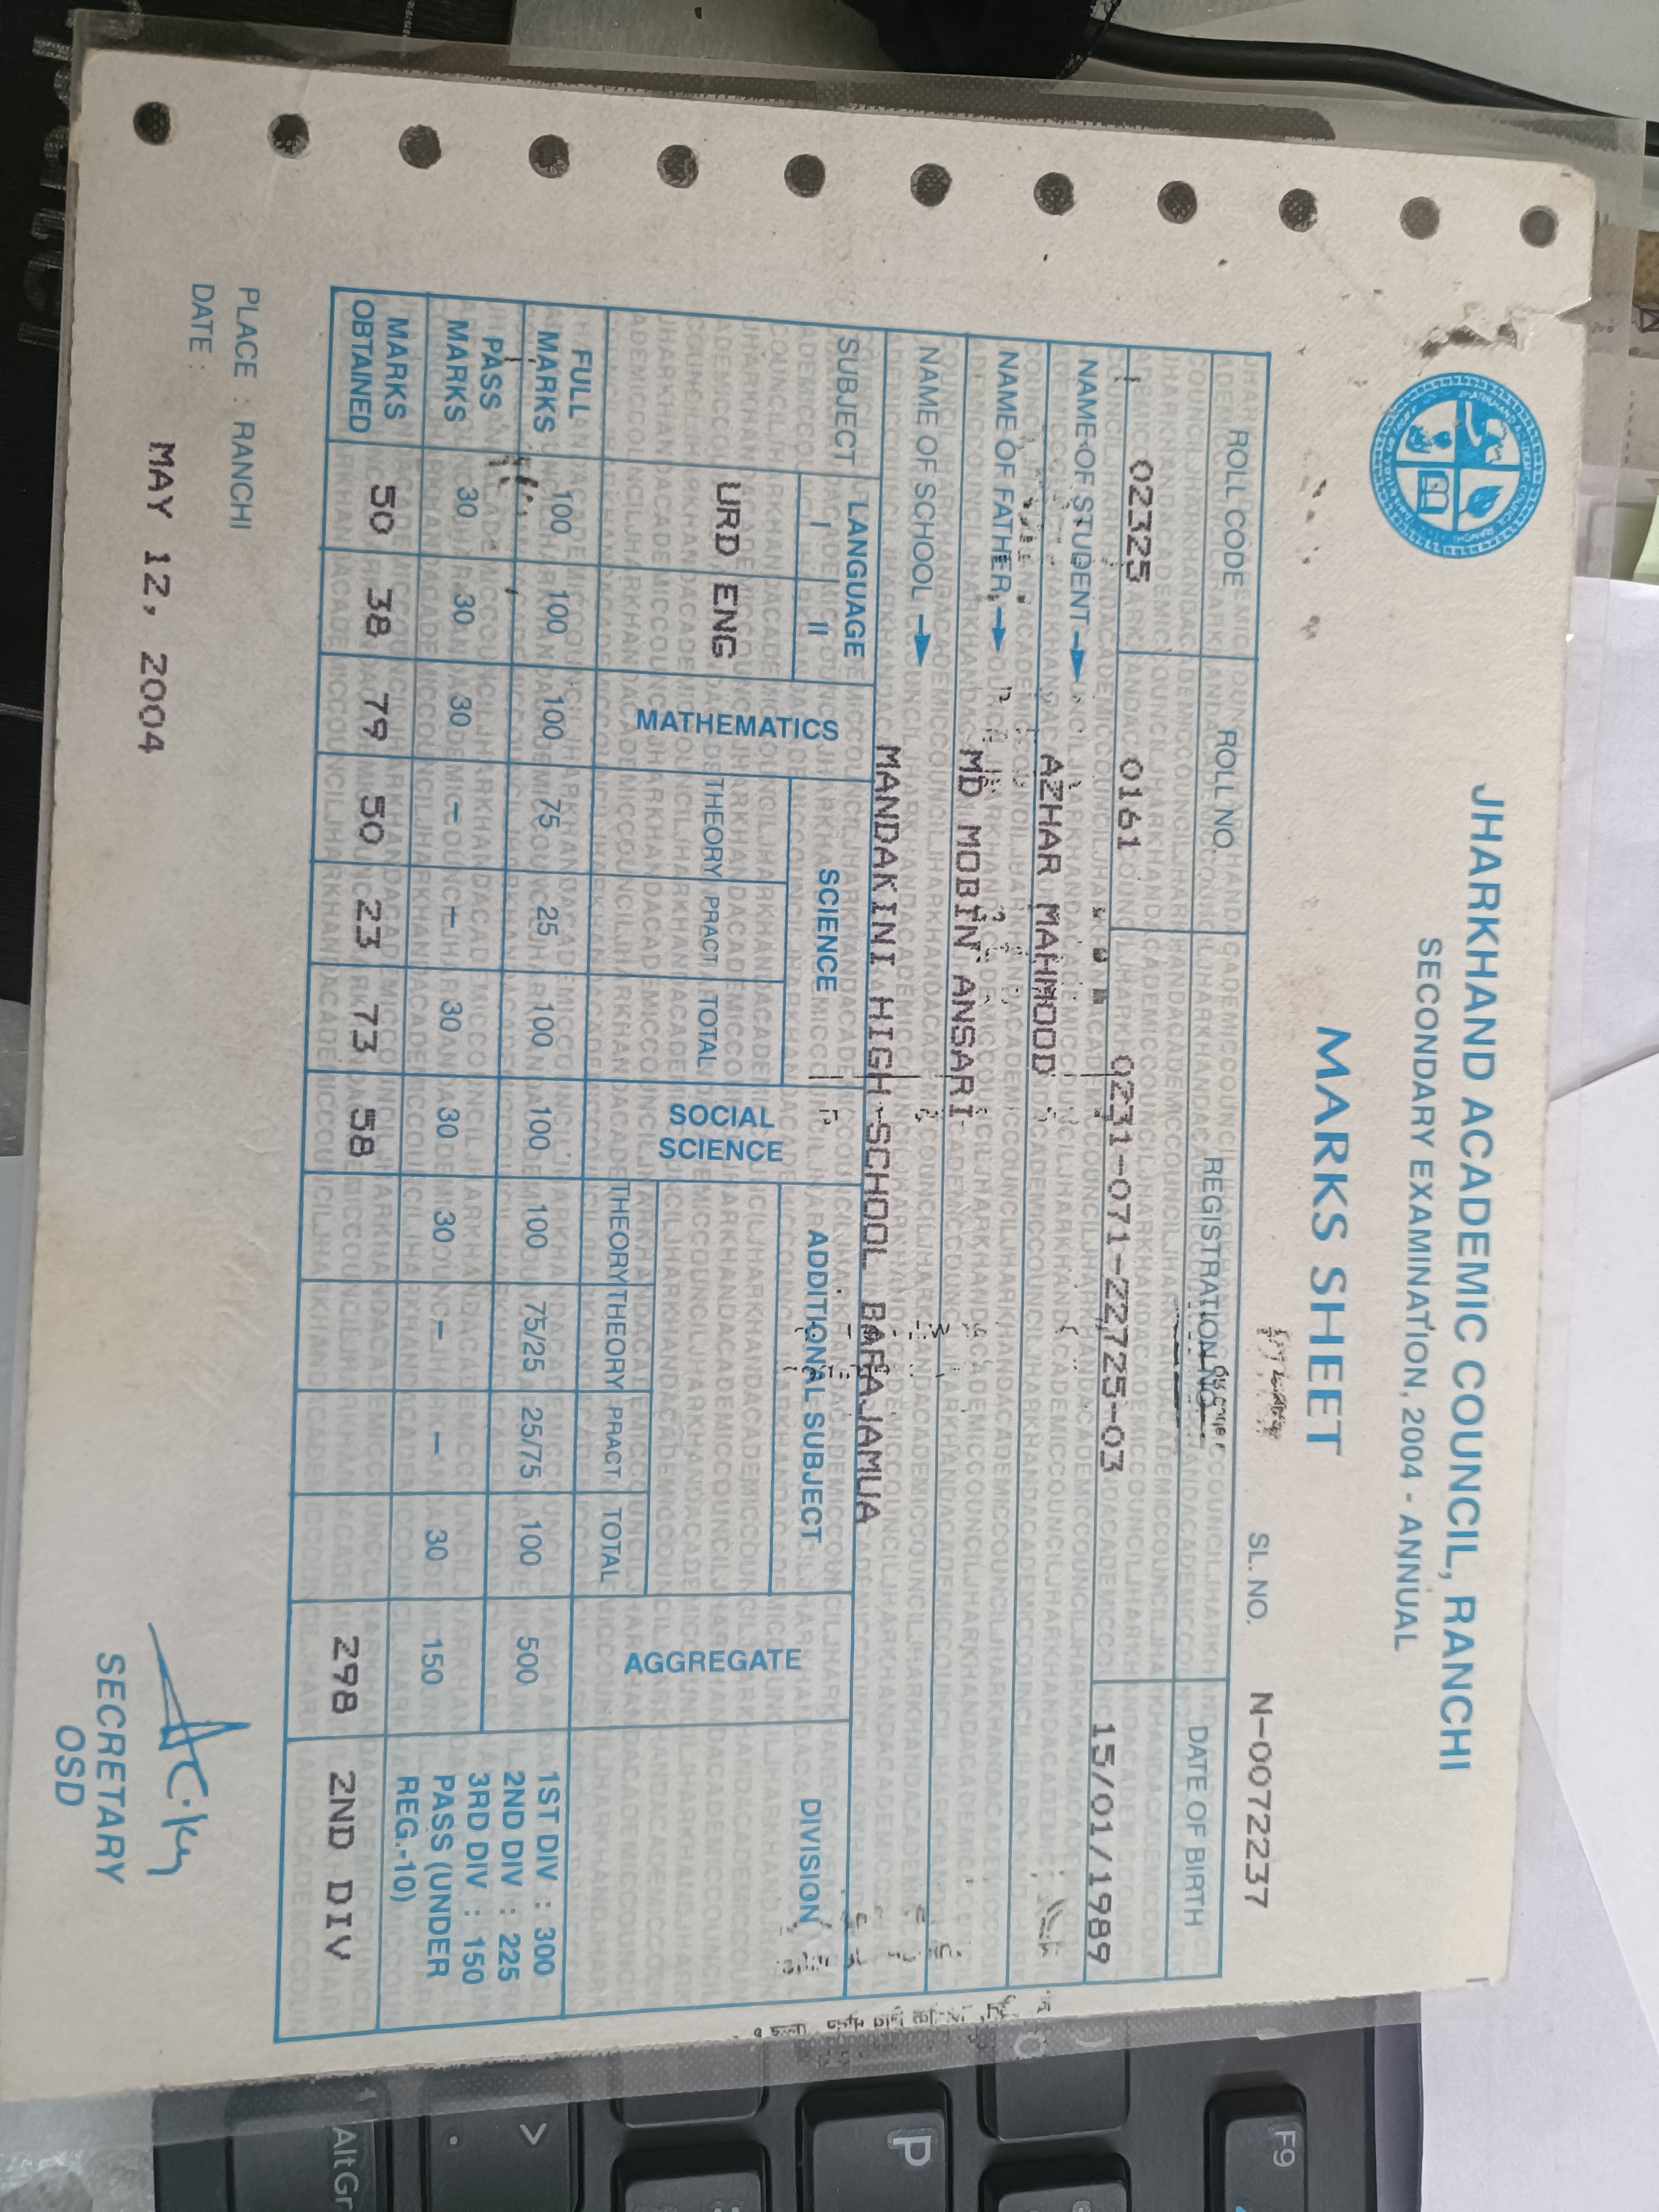 JHARKHAND ACADEMIC COUNCIL, RANCHI
SECONDARY EXAMINATION, 2004 - ANNUAL
MARKS SHEET
SL. NO. N-0072237
ROLL CODE ROLL NO. REGISTRATION NO. DATE OF BIRTH
02325 0161 0231-071-22725-03 15/01/1989
NAME OF STUDENT AZHAR MAHMOOD
NAME OF FATHER MD MOBIN ANSARI
NAME OF SCHOOL MANDAKINI HIGH SCHOOL BARAJAMUA
SUBJECT LANGUAGE MATHEMATICS SCIENCE SOCIAL SCIENCE ADDITIONAL SUBJECT AGGREGATE DIVISION
I II THEORY PRACT TOTAL THEORY THEORY PRACT TOTAL
URD ENG
FULL MARKS 100 100 100 75 25 100 100 100 75/25 25/75 100 500
PASS MARKS 30 30 30 - - 30 30 30 - - 30 150
1ST DIV : 300
2ND DIV : 225
3RD DIV : 150
PASS (UNDER
REG.-10)
MARKS OBTAINED 50 38 79 50 23 73 58 298 2ND DIV
PLACE : RANCHI
DATE :
MAY 12, 2004
SECRETARY
OSD
F9
P
>
.
AltGr